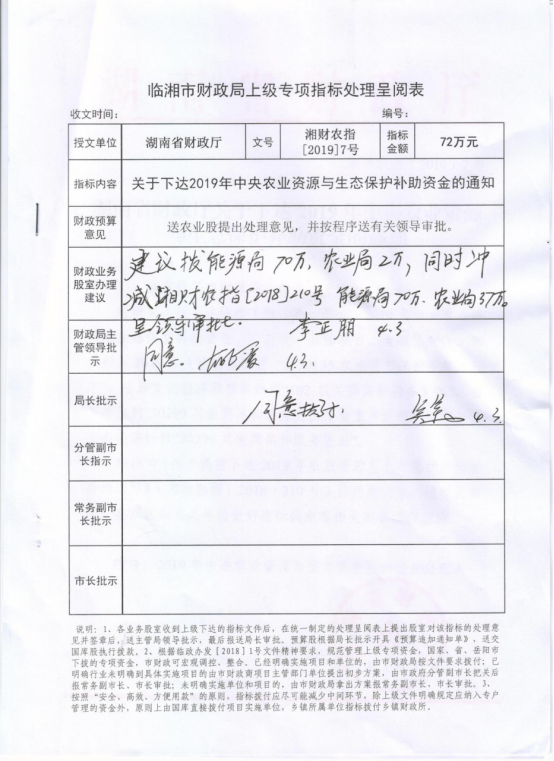 临湘市财政局上级专项指标处理呈阅表
收文时间： 编号：
授文单位 湖南省财政厅 文号 湘财农指[2019]7号 指标金额 72万元
指标内容 关于下达2019年中央农业资源与生态保护补助资金的通知
财政预算意见 送农业股提出处理意见，并按程序送有关领导审批。
财政业务股室办理建议 建议拨能源局70万，农业局2万，同时冲
减湘财农指[2018]210号 能源局70万、农业局37万。
呈领导审批。 李正朋 4.3
财政局主管领导批示 同意。 4.3.
局长批示 同意拨付. 4.3.
分管副市长指示
常务副市长批示
市长批示
说明：1、各业务股室收到上级下达的指标文件后，在统一制定的处理呈阅表上提出股室对该指标的处理意
见并签章后，送主管局领导批示，最后报送局长审批。预算股根据局长批示开具《预算追加通知单》、送交
国库股执行拨款。2、根据临政办发［2018］1号文件精神要求，规范管理上级专项资金，国家、省、岳阳市
下拨的专项资金，市财政可宏观调控、整合。已经明确实施项目和单位的，由市财政局按文件要求拨付；已
明确行业未明确到具体实施项目的由市财政商项目主管部门单位提出初步方案，由市政府分管副市长把关后
报常务副市长、市长审批；未明确实施单位和项目的，由市财政局拿出方案报常务副市长、市长审批。3、
按照“安全、高效、方便用款”的原则，指标拨付应尽可能减少中间环节，除上级文件明确规定应纳入专户
管理的资金外，原则上由国库直接拨付项目实施单位，乡镇所属单位指标拨付乡镇财政所。